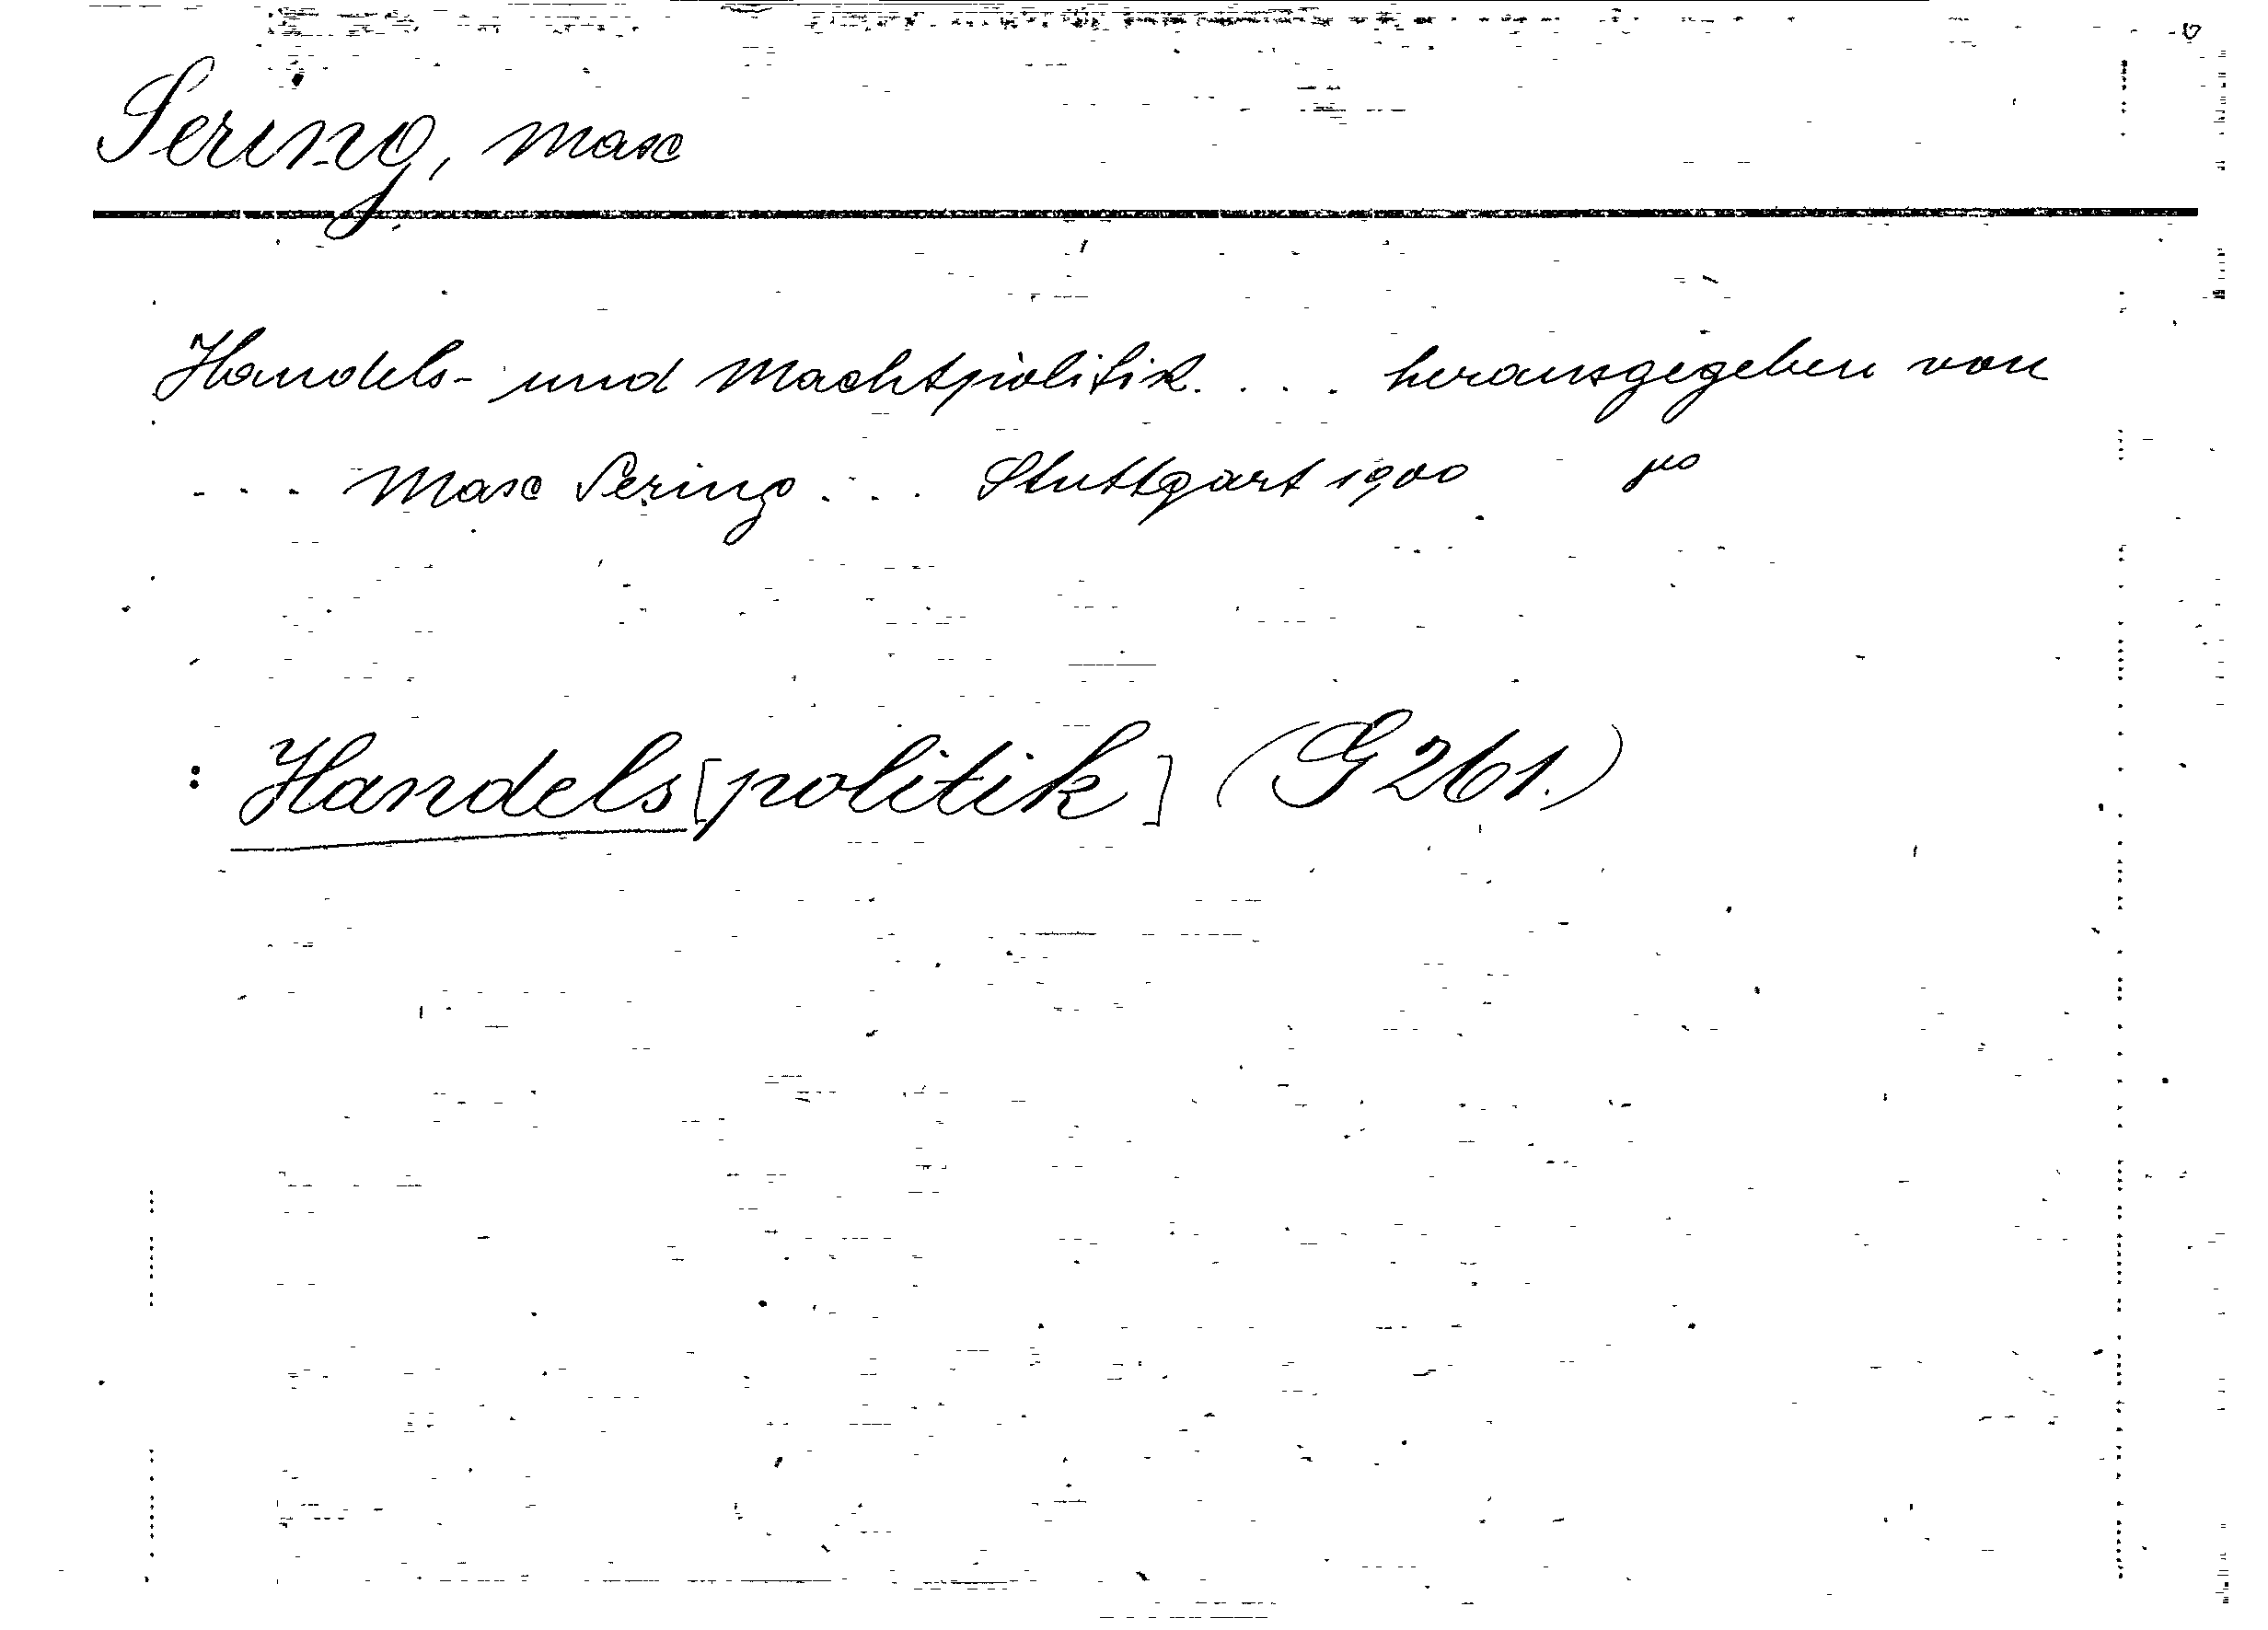 Sering, Max
Handels- und Machtpolitik. ... herausgegeben von
... Max Sering ... Stuttgart 1900
: Handels[politik] (G 261.)